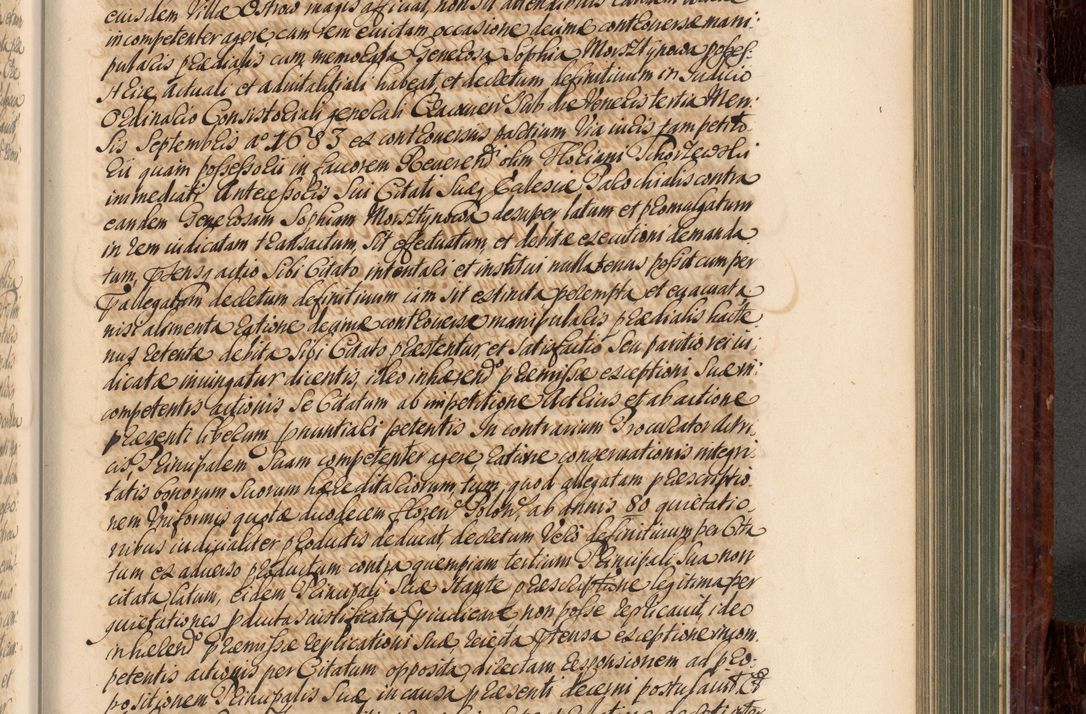 eiusdem Villæ Ostrow magis afficiat, non sit attendibilis eandem
incompetenter agere, cum rem cuidam occasione decimæ controversæ mani
pularis prædialis cum memorata Generosa Sophia Morsztynowa posses-
strice actuali et advitalitiali habeat, et decretum definitivum in Judicio
Ordinario Consistoriali generali Cracovien sub die Veneris tertia Men:
sis Septembris aº 1683 ex controversiis partium via iuris tam petito
rii quam possessorii in favorem Reverendi olim Floriani
immediati Antecessoris sui Citati suæq Ecclesiæ Parochialis contra
eandem Generosam Sophiam Morsztynowa desuper latum et promulgatum
in rem iudicatam transactum, sit effectuatum, et debitæ executioni demanda
tum, Præsensq actio sibi Citato intentari et institui nullatenus possit cum per
præallegatum decretum definitivum iam sit extincta perempta, et evacuata
nisi alimenta ratione decimæ controversæ manipularis prædialis hacte
nus retentæ debita sibi Citato præstentur et satisfactio seu paritio rei iu
dicatæ iniungatur dicentis, ideo inhærendº præmissæ exceptioni suæ in
competentis actionis se Citatum ab impetitione Actricis et ab actione
præsenti liberum pronuntiari petentis In contrarium Procurator Actri
cis, Principalem suam competenter agere, ratione conservationis integri
tatis bonorum suorum hæreditariorum, tum, quod allegatam præscriptio
nem Uniformis quotæ duodecem floren Polon, ab Annis 80 quietatio
nibus iudicialiter productis deducat decretum Vero definitivum per Cita
tum ex adverso productum contra quempiam tertium Principali sua non
citata, latum, eidem Principali suæ stante præscriptione legitima per
quietationes producta iustificata, præiudicare non posse replicavit, ideo
inhærendº præmissæ replicationi suæ, reiecta prætensa exceptione incom
petentis actionis per Citatum opposita, directam responsionem ad pro-
positionem Principalis suæ in causa præsenti decerni postulavit Et